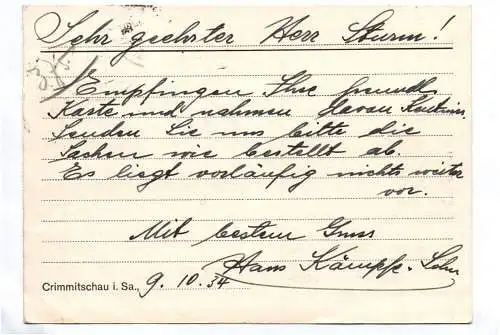 Sehr geehrter Herr Sturm!
Empfingen Ihre freundl.
Karte und nahmen davon Kentnis.
Senden Sie uns bitte die
Sachen wie bestellt ab.
Es liegt vorläufig nichts weiter
vor.
Mit bestem Gruss
Hans Kämpfe. Sohn
Crimmitschau i. Sa., 9. 10. 34